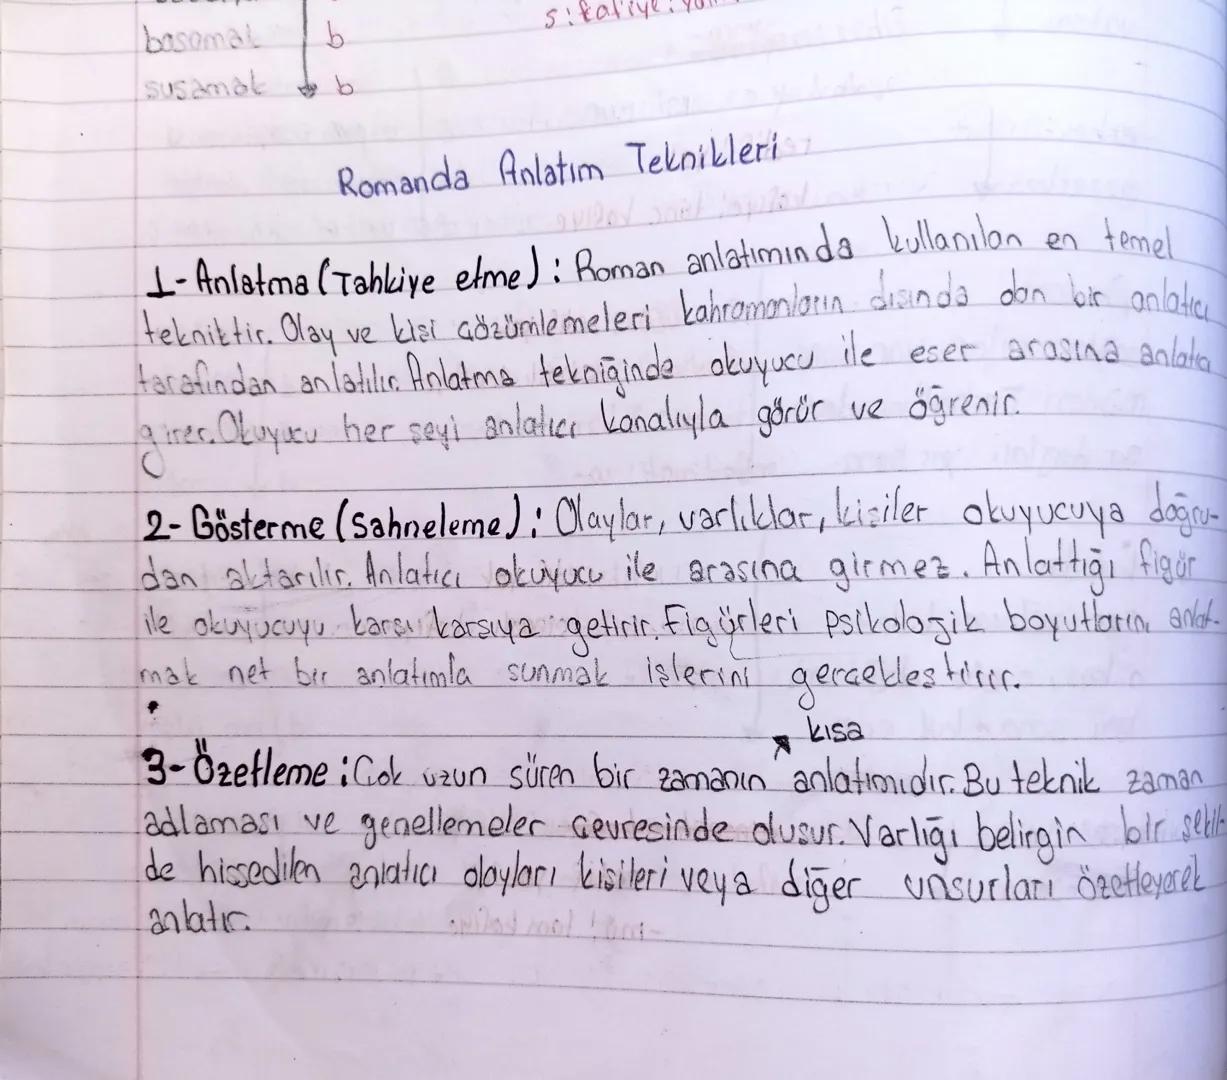 basamak b
susamak b
Romanda Anlatım Teknikleri
1-Anlatma (Tahkiye etme) : Roman anlatımında kullanılan en temel
tekniktir. Olay ve kişi çözümlemeleri kahramanların dışında olan bir anlatıcı
tarafından anlatılır. Anlatma tekniğinde okuyucu ile eser arasına anlatıcı
girer. Okuyucu her şeyi anlatıcı kanalıyla görür ve öğrenir.
2- Gösterme (Sahneleme) : Olaylar, varlıklar, kişiler okuyucuya doğru-
dan aktarılır. Anlatıcı okuyucu ile arasına girmez. Anlattığı figür
ile okuyucuyu karşı karşıya getirir. Figürleri psikolojik boyutların anlat-
mak net bir anlatımla sunmak işlerini gerçekleştirir.
kısa
3-Özetleme : Çok uzun süren bir zamanın anlatımıdır. Bu teknik zaman
adlaması ve genellemeler çevresinde oluşur. Varlığı belirgin bir şekil-
de hissedilen anlatıcı olayları kişileri veya diğer unsurları özetleyerek
anlatır.